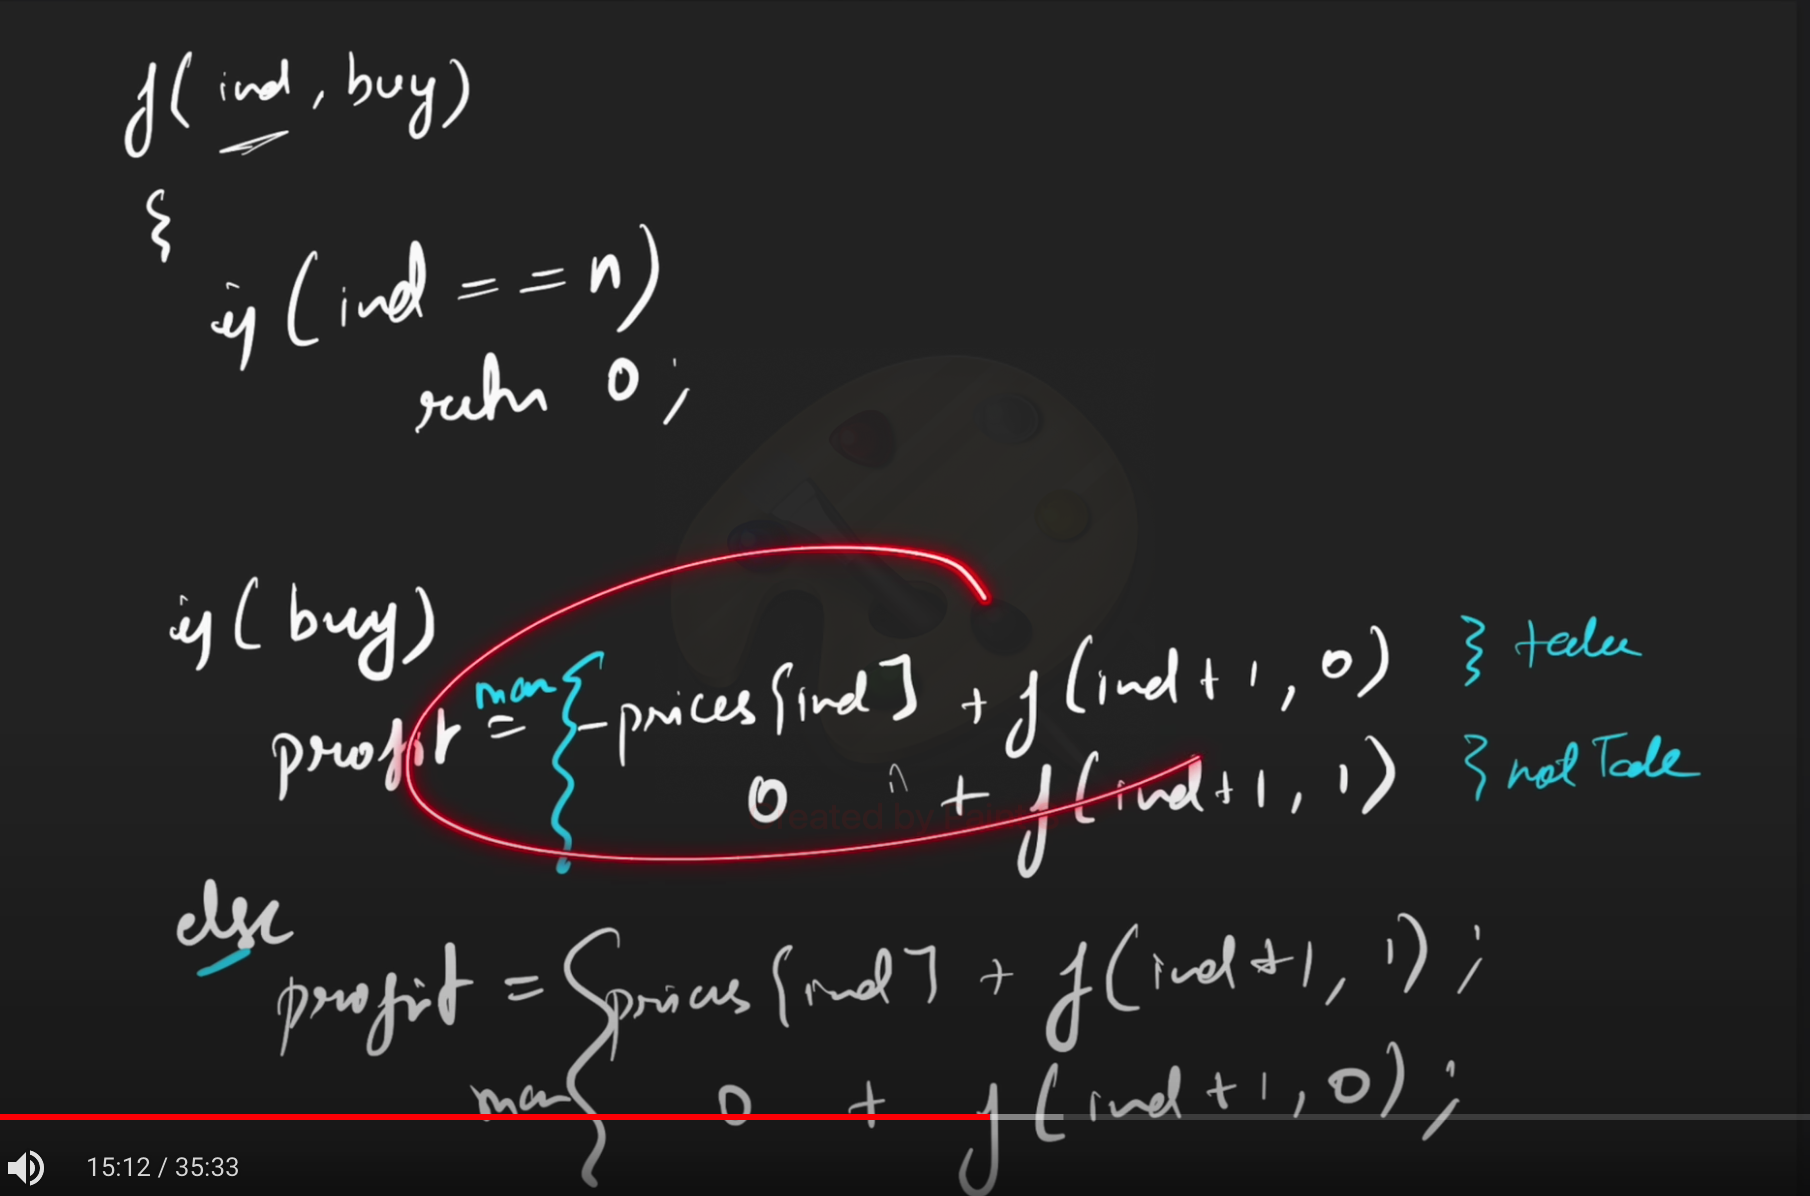 f(ind, buy)
{
if(ind == n)
return 0;
if(buy)
profit = max { -prices[ind] + f(ind+1, 0) } take
0 + f(ind+1, 1) } not Take
else
profit = { prices[ind] + f(ind+1, 1);
max { 0 + f(ind+1, 0);
15:12 / 35:33